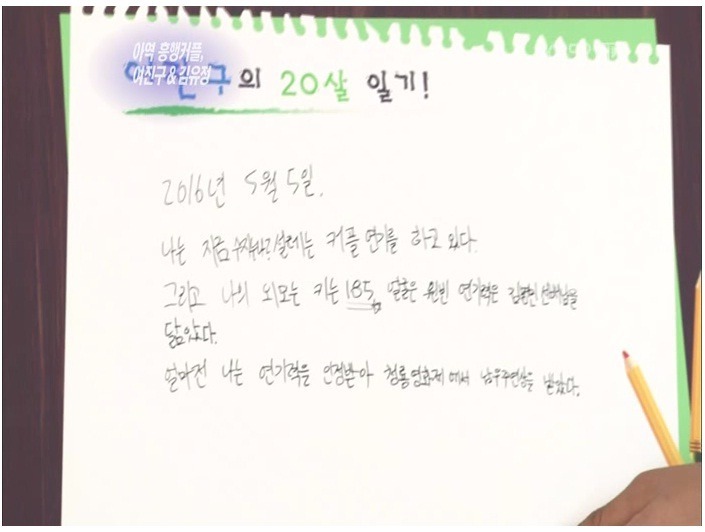 아역 흥행커플,
여진구 & 김유정
여진구의 20살 일기!
2016년 5월 5일.
나는 지금 수지와? 설레는 커플 연기를 하고 있다.
그리고 나의 외모는 키는 185, 얼굴은 원빈 연기력은 선배님을
닮았다.
얼마전 나는 연기력을 인정받아 청룡영화제에서 남우주연상을 받았다.